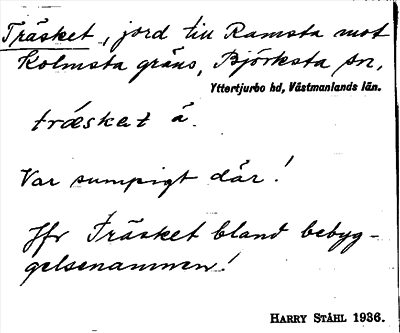 Träsket, jord till Ramsta mot
Kolmsta gräns, Björksta sn,
Yttertjurbo hd, Västmanlands län.
træskat á.
Var sumpigt där!
Jfr Träsket bland bebyg-
gelsenamnen!
HARRY STÅHL 1936.